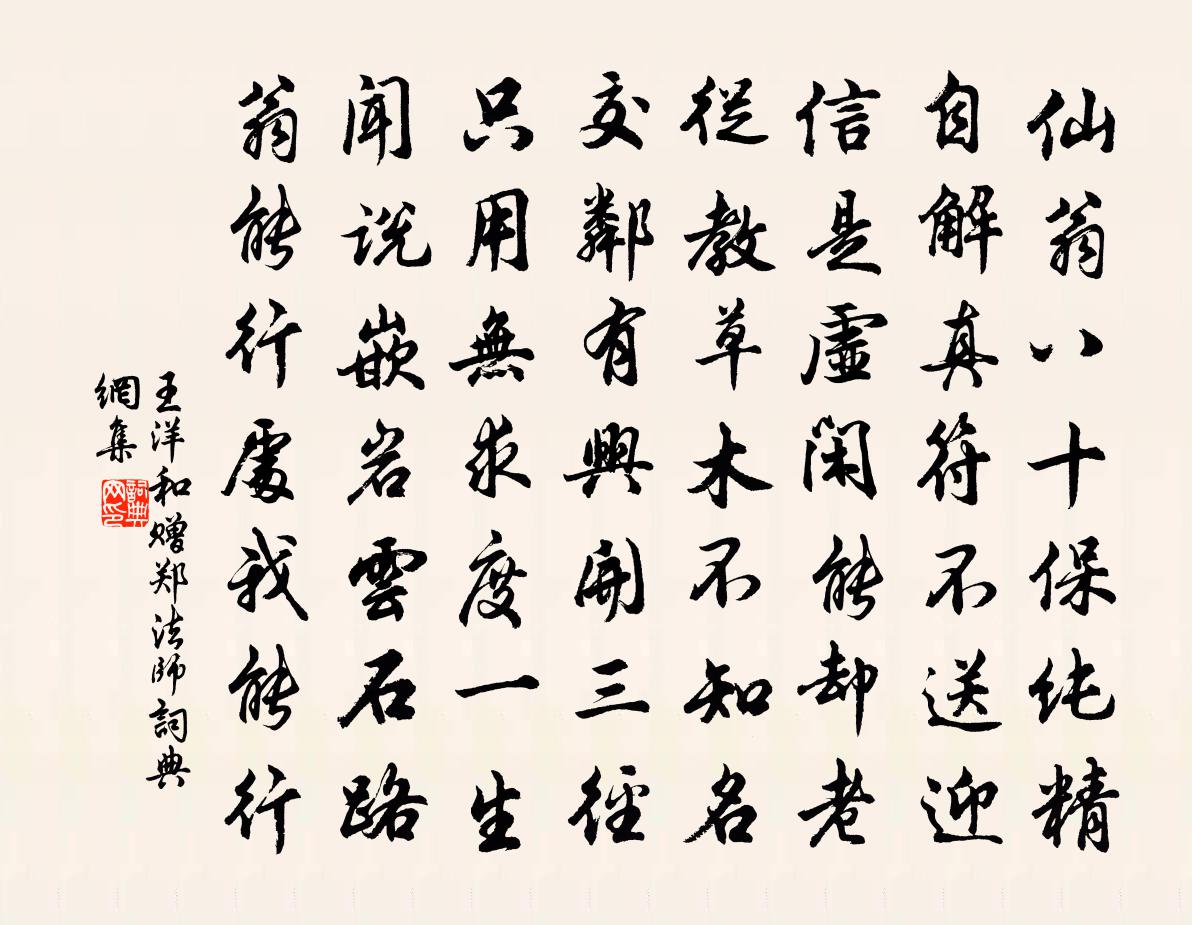 仙翁八十保纯精
自解真符不送迎
信是虛闲能却老
從教草木不知名
交鄰有興開三徑
只用無求度一生
聞说嵌岩雲石路
翁能行處我能行
王洋和赠郑法師詞典
網集
詞典
网印